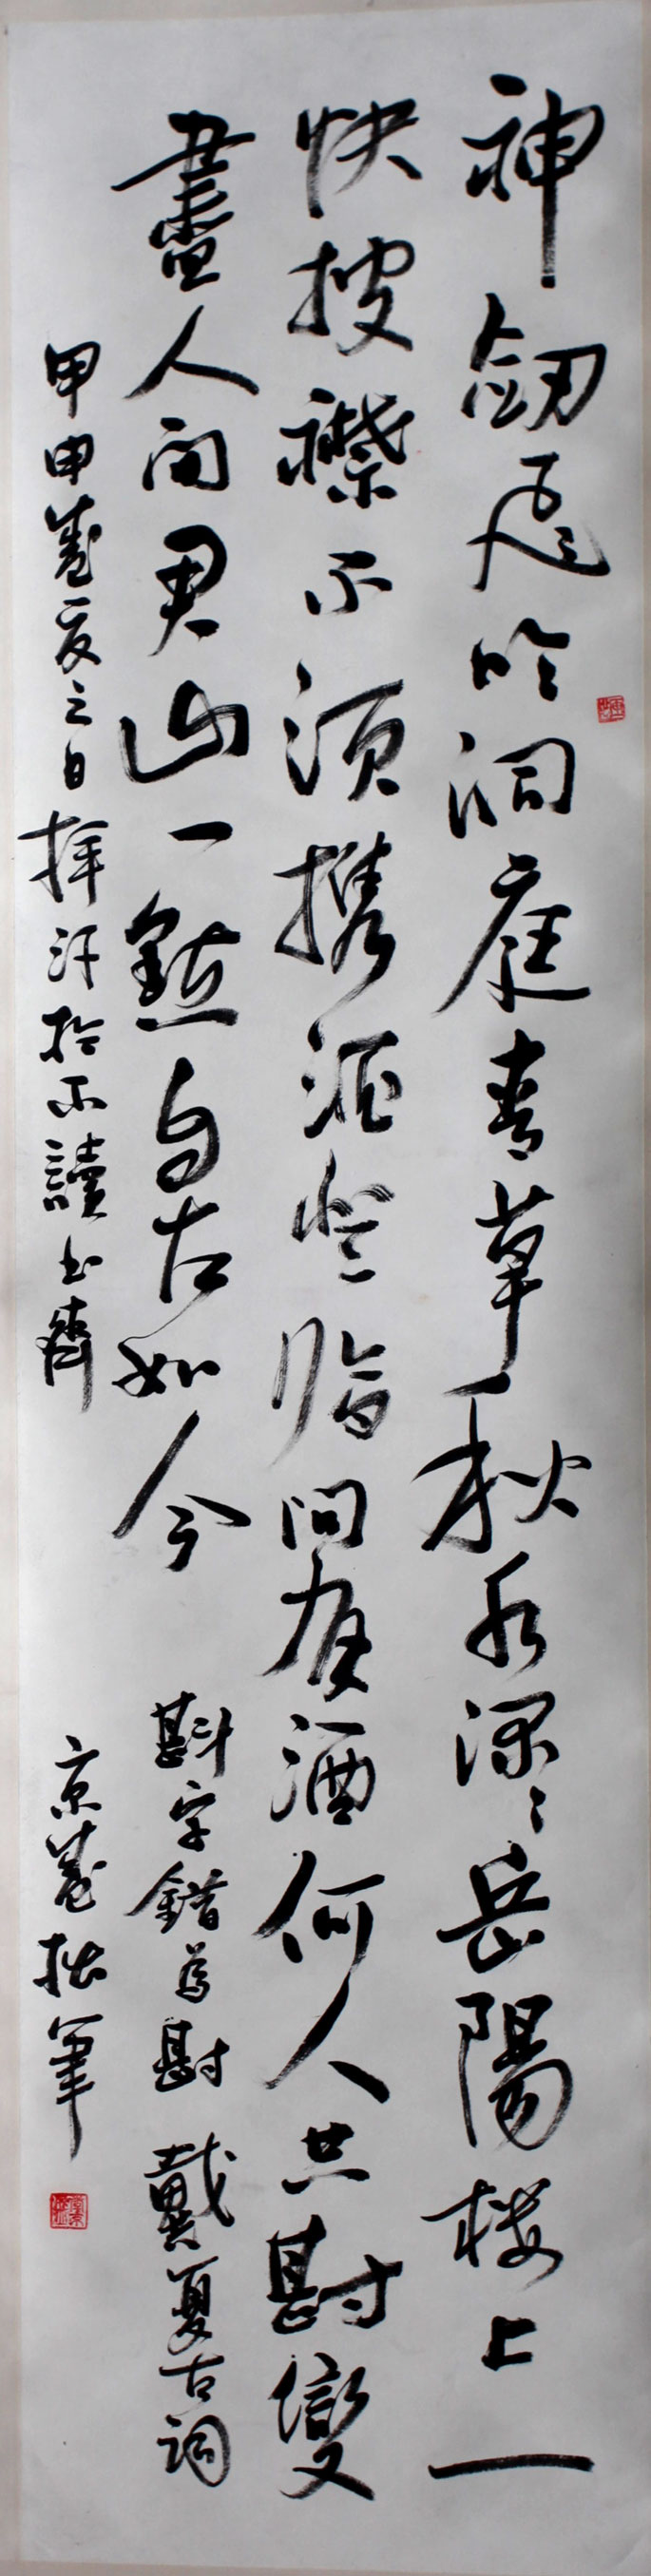 神劒飛吟洞庭青草秋水深〻岳陽楼上一
快披襟不須携酒登临問有酒何人共變
畫人间君山一點自古如今 斟字錯為 戴夏古詞
甲申歲夏之日揮汗於不讀书齋 京歲拙筆